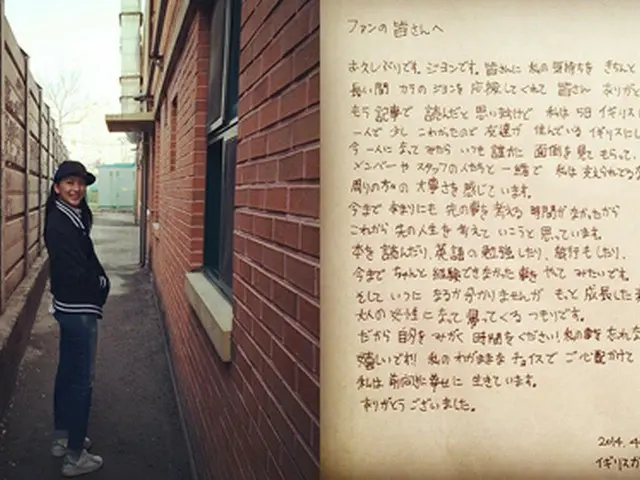 ファンの皆さんへ
お久しぶりです。ジヨンです。皆さんに 私の気持ちを きちんと
長い間 カラの ジヨンを 応援してくれて 皆さん ありがと
もう 記事で 読んだと 思いますけど 私は 5日 イギリス
一人で 少し こわかったので 友達が 住んでいる イギリスにし
今 一人に なって みたら いつも 誰かに 面倒を 見て もらって
メンバーや スタッフの人たちと 一緒で 私は 支えられてる
周りの 方々の 大事さを 感じて います。
今まで あまりにも 先の事を 考える 時間が なかったから
これから 先の人生を 考えて いこうと 思っています。
本を 読んだり、英語の 勉強したり、旅行もしたり、
今まで ちゃんと 経験できなかった 事を やて みたいです。
そして いつに なるか 分かりませんが もっと 成長した
大人の 女性に なって 帰ってくる つもりです。
だから 自分を みがく 時間を ください！私の事を 忘れな
嬉しいです！ 私の わがままな チョイスで ご心配かけて
私は 前向きに 幸せに 生きています。
ありがとう ございました。
2014. 4
イギリスか